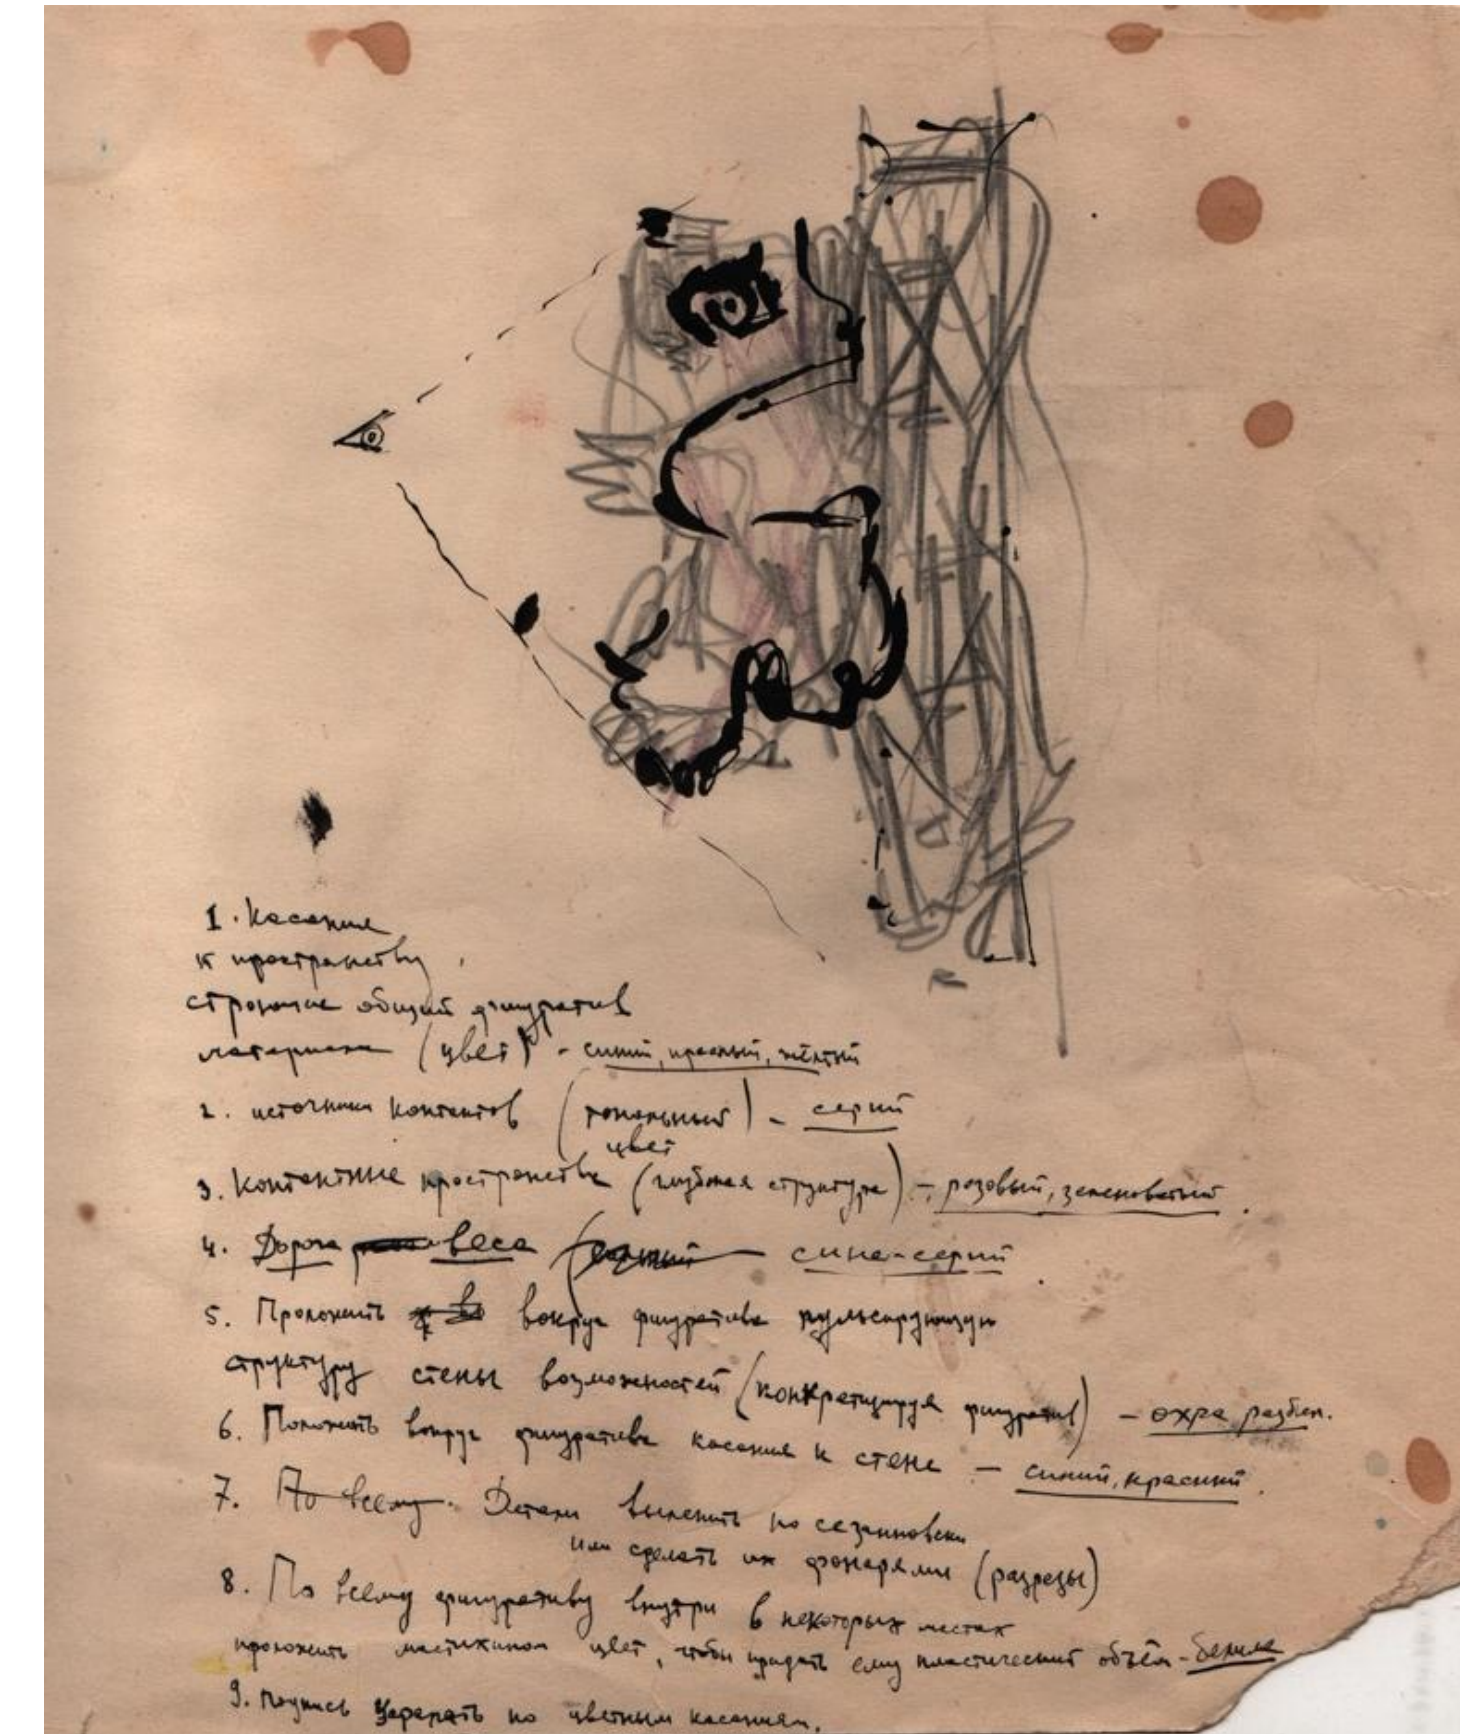 1. Касание
к пространству,
строющие общий фигуратив
материала (цвет) - синий, красный, жёлтый
2. источники контактов (тональный) - серый
цвет
3. Контактные пространства (глубокая структура) - розовый, зеленоватый.
4. Дорога веса - сине-серый.
5. Проложить вокруг фигуратива пульсирующую
структуру стены возможностей (конкретизируя фигуратив) - охра разбел.
6. Положить вокруг фигуратива касания к стене - синий, красный.
7. По всему. Детали вылепить по сезанновски
или сделать их фонарями (разрезы)
8. По всему фигуративу внутри в некоторых местах
проложить мастихином цвет, чтобы придать ему пластический объём - белила
9. Подпись царапать по цветным касаниям.